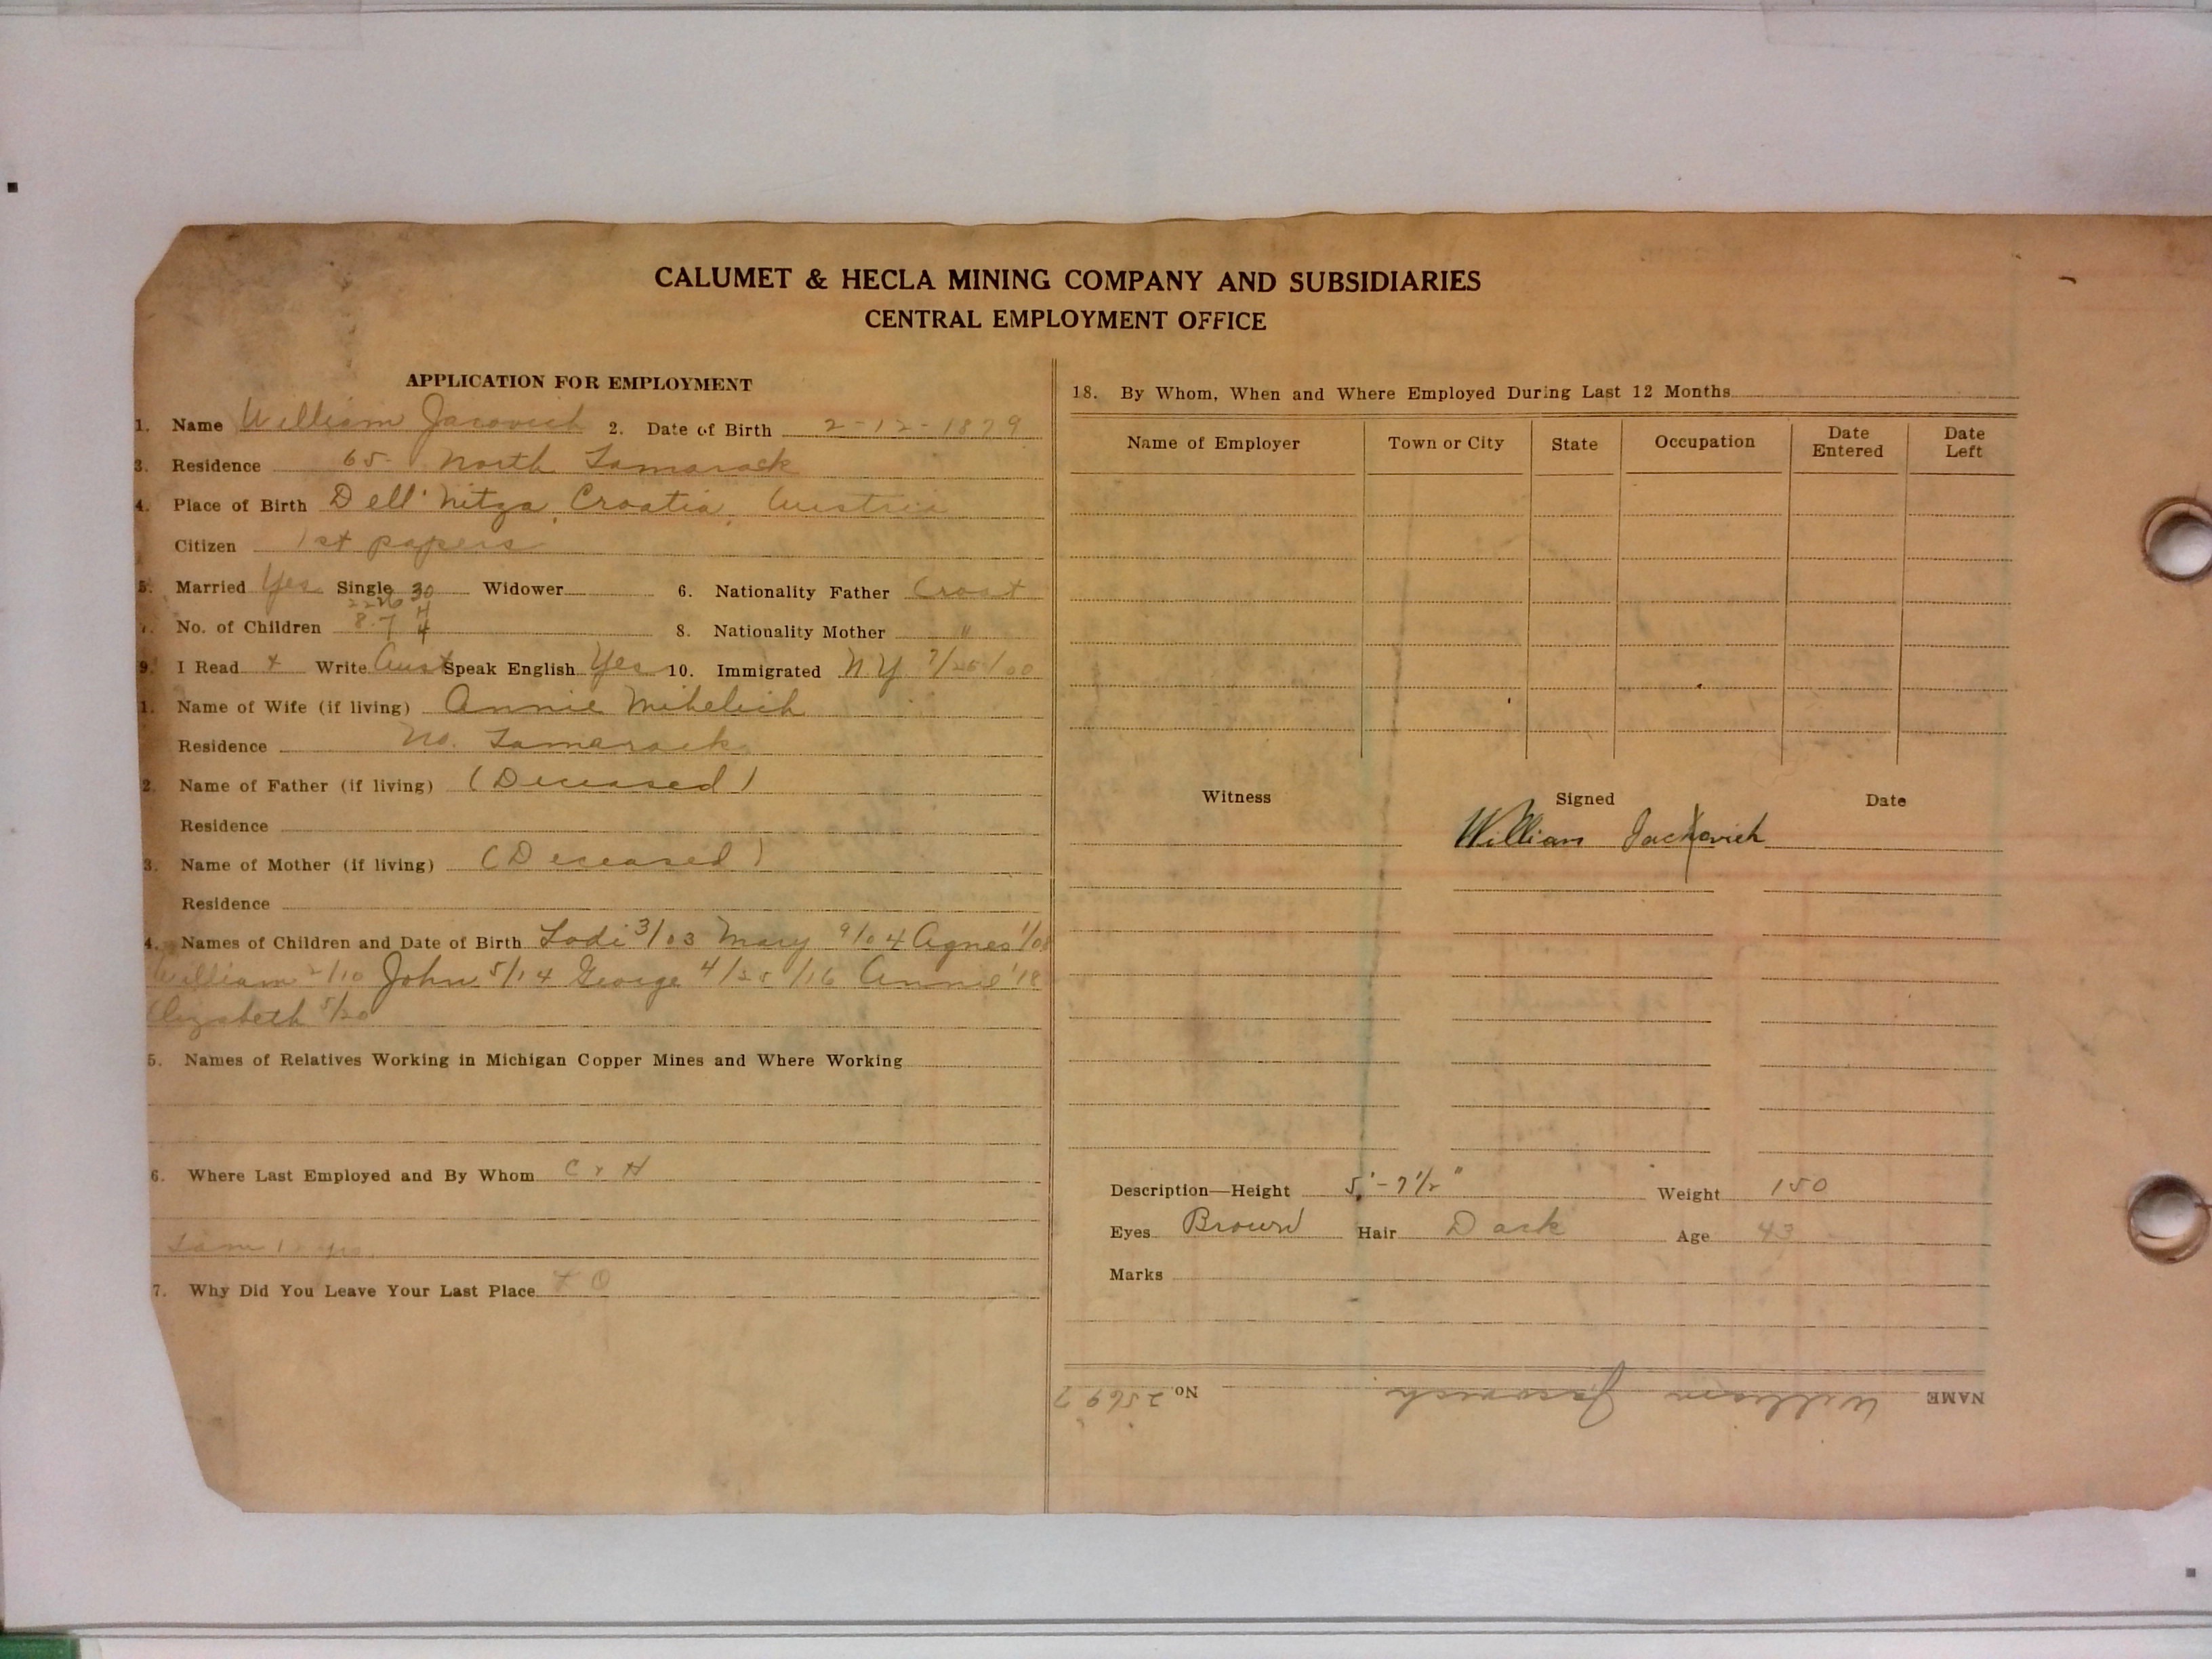 CALUMET & HECLA MINING COMPANY AND SUBSIDIARIES
CENTRAL EMPLOYMENT OFFICE
APPLICATION FOR EMPLOYMENT
1. Name William Jacovich 2. Date of Birth 2-12-1879
3. Residence 65 North Tamarack
4. Place of Birth Dell'nitza, Croatia, Austria
Citizen 1st papers
5. Married Yes Single 30 Widower
6. Nationality Father Croat
7. No. of Children 8.7 4
8. Nationality Mother "
9. I Read + Write Aust Speak English Yes 10. Immigrated N Y 7/25/00
1. Name of Wife (if living) Annie Mihelich
Residence No. Tamarack
2. Name of Father (if living) (Deceased)
Residence
3. Name of Mother (if living) (Deceased)
Residence
4. Names of Children and Date of Birth 3/03 Mary 9/04 Agnes 1/08
William 2/10 John 5/14 George 4/25/16 Annie '18
Elizabeth 5/20
5. Names of Relatives Working in Michigan Copper Mines and Where Working
6. Where Last Employed and By Whom C & H
7. Why Did You Leave Your Last Place
18. By Whom, When and Where Employed During Last 12 Months
Name of Employer Town or City State Occupation Date Entered Date Left
Witness Signed Date
William Jackovich
Description—Height 5'-7 1/2" Weight 150
Eyes Brown Hair Dark Age 43
Marks
NAME William Jacovich No 25697